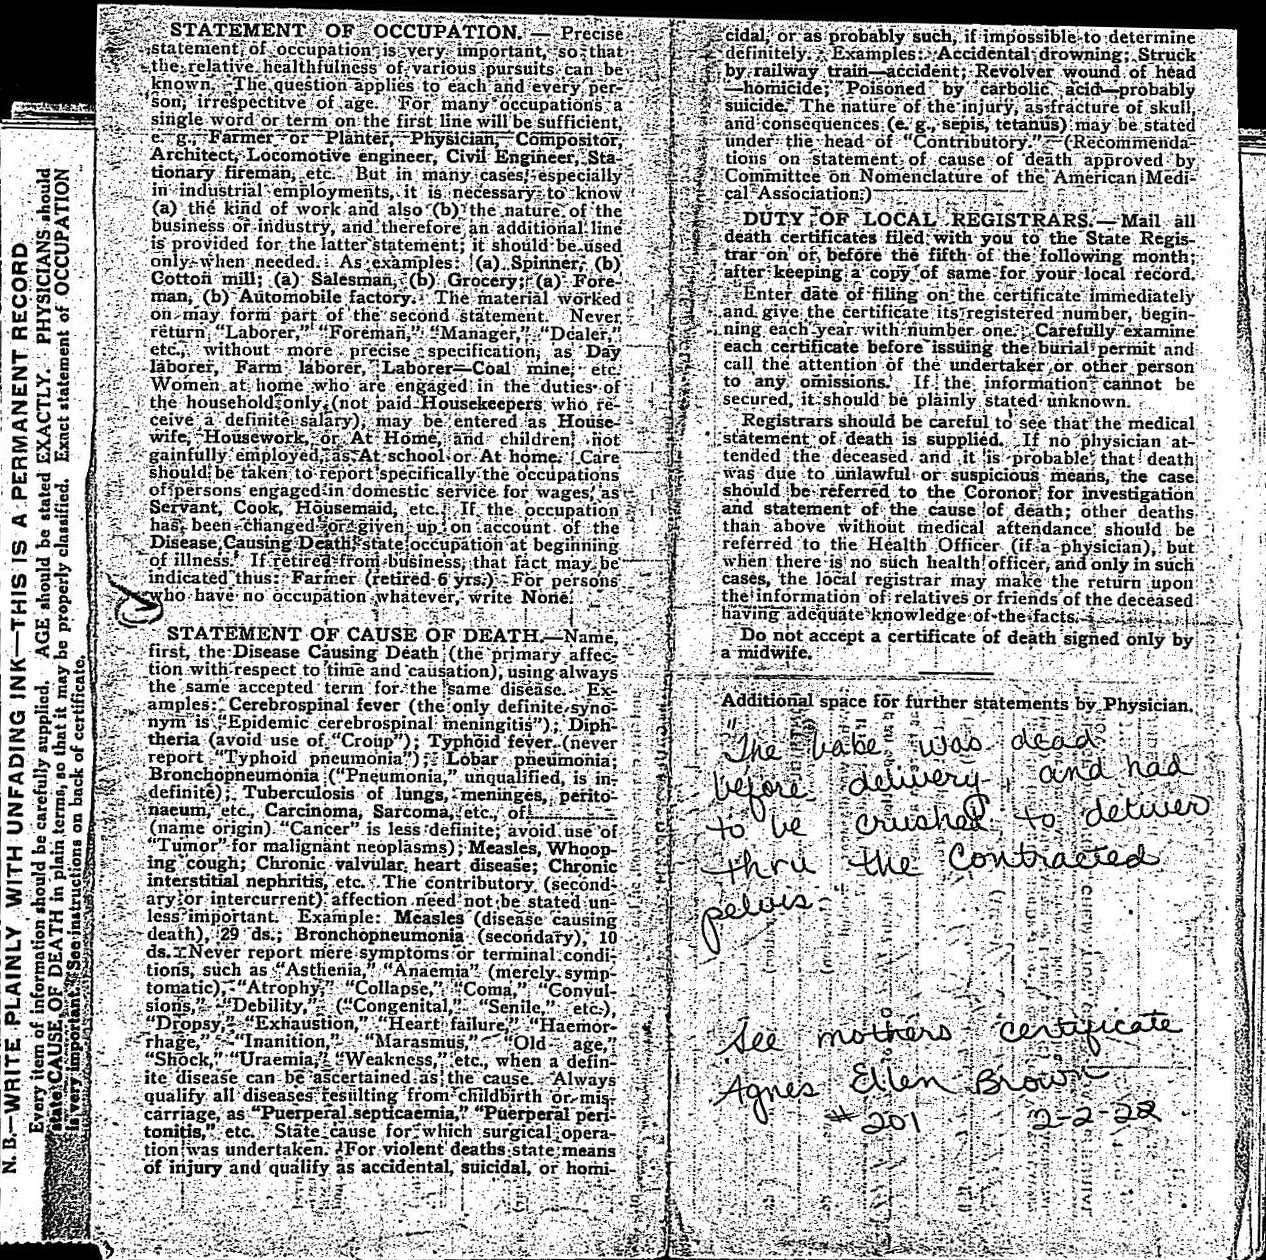 N. B.—WRITE PLAINLY WITH UNFADING INK—THIS IS A PERMANENT RECORD
Every item of information should be carefully supplied. AGE should be stated EXACTLY. PHYSICIANS should
state CAUSE OF DEATH in plain terms, so that it may be properly classified. Exact statement of OCCUPATION
is very important. See instructions on back of certificate.
STATEMENT OF OCCUPATION. — Precise
statement of occupation is very important, so that
the relative healthfulness of various pursuits can be
known. The question applies to each and every per-
son, irrespecitve of age. For many occupations a
single word or term on the first line will be sufficient,
e. g., Farmer or Planter, Physician, Compositor,
Architect, Locomotive engineer, Civil Engineer, Sta-
tionary fireman, etc. But in many cases, especially
in industrial employments, it is necessary to know
(a) the kind of work and also (b) the nature of the
business or industry, and therefore an additional line
is provided for the latter statement; it should be used
only when needed. As examples: (a) Spinner, (b)
Cotton mill; (a) Salesman, (b) Grocery; (a) Fore-
man, (b) Automobile factory. The material worked
on may form part of the second statement. Never
return "Laborer," "Foreman," "Manager," "Dealer,"
etc., without more precise specification, as Day
laborer, Farm laborer, Laborer—Coal mine, etc.
Women at home who are engaged in the duties of
the household only (not paid Housekeepers who re-
ceive a definite salary), may be entered as House-
wife, Housework, or At Home, and children, not
gainfully employed, as At school or At home. Care
should be taken to report specifically the occupations
of persons engaged in domestic service for wages, as
Servant, Cook, Housemaid, etc. If the occupation
has been changed or given up on account of the
Disease Causing Death, state occupation at beginning
of illness. If retired from business, that fact may be
indicated thus: Farmer (retired 6 yrs.) For persons
who have no occupation whatever, write None.
STATEMENT OF CAUSE OF DEATH.—Name,
first, the Disease Causing Death (the primary affec-
tion with respect to time and causation), using always
the same accepted term for the same disease. Ex-
amples: Cerebrospinal fever (the only definite syno-
nym is "Epidemic cerebrospinal meningitis"); Diph-
theria (avoid use of "Croup"); Typhoid fever (never
report "Typhoid pneumonia"); Lobar pneumonia;
Bronchopneumonia ("Pneumonia," unqualified, is in-
definite); Tuberculosis of lungs, meninges, perito-
naeum, etc., Carcinoma, Sarcoma, etc., of
(name origin) "Cancer" is less definite; avoid use of
"Tumor" for malignant neoplasms); Measles, Whoop-
ing cough; Chronic valvular heart disease; Chronic
interstitial nephritis, etc. The contributory (second-
ary or intercurrent) affection need not be stated un-
less important. Example: Measles (disease causing
death), 29 ds.; Bronchopneumonia (secondary), 10
ds. Never report mere symptoms or terminal condi-
tions, such as "Asthenia," "Anaemia" (merely symp-
tomatic), "Atrophy," "Collapse," "Coma," "Convul-
sions," "Debility," ("Congenital," "Senile," etc.),
"Dropsy," "Exhaustion," "Heart failure," "Haemor-
rhage," "Inanition," "Marasmus," "Old age,"
"Shock," "Uraemia," "Weakness," etc., when a defin-
ite disease can be ascertained as the cause. Always
qualify all diseases resulting from childbirth or mis-
carriage, as "Puerperal septicaemia," "Puerperal peri-
tonitis," etc. State cause for which surgical opera-
tion was undertaken. For violent deaths state means
of injury and qualify as accidental, suicidal, or homi-
cidal, or as probably such, if impossible to determine
definitely. Examples: Accidental drowning; Struck
by railway train—accident; Revolver wound of head
—homicide; Poisoned by carbolic acid—probably
suicide. The nature of the injury, as fracture of skull,
and consequences (e. g., sepis, tetanus) may be stated
under the head of "Contributory." (Recommenda-
tions on statement of cause of death approved by
Committee on Nomenclature of the American Medi-
cal Association.)
DUTY OF LOCAL REGISTRARS.—Mail all
death certificates filed with you to the State Regis-
trar on or before the fifth of the following month;
after keeping a copy of same for your local record.
Enter date of filing on the certificate immediately
and give the certificate its registered number, begin-
ning each year with number one. Carefully examine
each certificate before issuing the burial permit and
call the attention of the undertaker or other person
to any omissions. If the information cannot be
secured, it should be plainly stated unknown.
Registrars should be careful to see that the medical
statement of death is supplied. If no physician at-
tended the deceased and it is probable that death
was due to unlawful or suspicious means, the case
should be referred to the Coronor for investigation
and statement of the cause of death; other deaths
than above without medical attendance should be
referred to the Health Officer (if a physician), but
when there is no such health officer, and only in such
cases, the local registrar may make the return upon
the information of relatives or friends of the deceased
having adequate knowledge of the facts.
Do not accept a certificate of death signed only by
a midwife.
Additional space for further statements by Physician.
"The babe was dead
before delivery, and had
to be crushed to deliver
thru the Contracted
pelvis.
See mothers certificate
Agnes Ellen Brown
#201 2-2-22